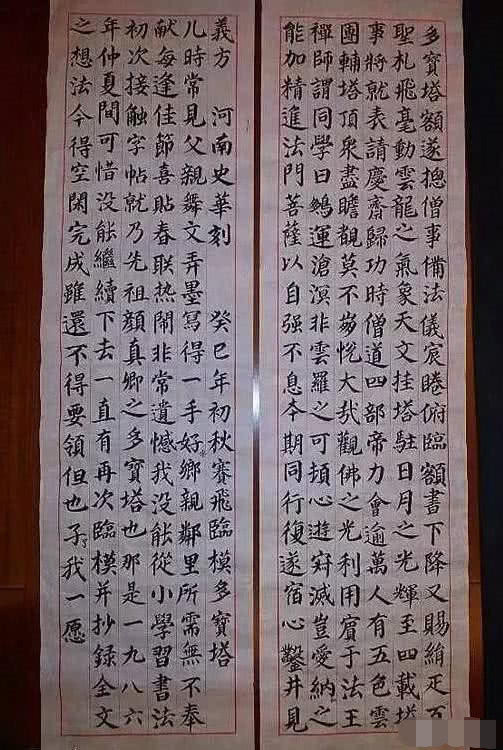 多寶塔額遂摠僧事備法儀宸睠俯臨額書下降又賜絹疋百
聖札飛毫動雲龍之氣象天文挂塔駐日月之光輝至四載塔
事將就表請慶齋歸功時僧道四部帝力會逾萬人有五色雲
團輔塔頂衆盡瞻覩莫不崩悅大哉觀佛之光利用賓于法王
禪師謂同學曰鵬運滄溟非雲羅之可頓心遊寂滅豈愛納之
能加精進法門菩薩以自强不息本期同行復遂宿心鑿井見
義方 河南史華刻 癸巳年初秋賽飛臨模多寶塔
儿時常見父親舞文弄墨寫得一手好鄉親鄰里所需無不奉
献每逢佳節喜貼春联热閙非常遺憾我没能從小學習書法
初次接触字帖就乃先祖顔真卿之多寶塔也那是一九八六
年仲夏間可惜没能繼續下去一直有再次臨模并抄録全文
之想法今得空閑完成雖還不得要領但也子我一愿